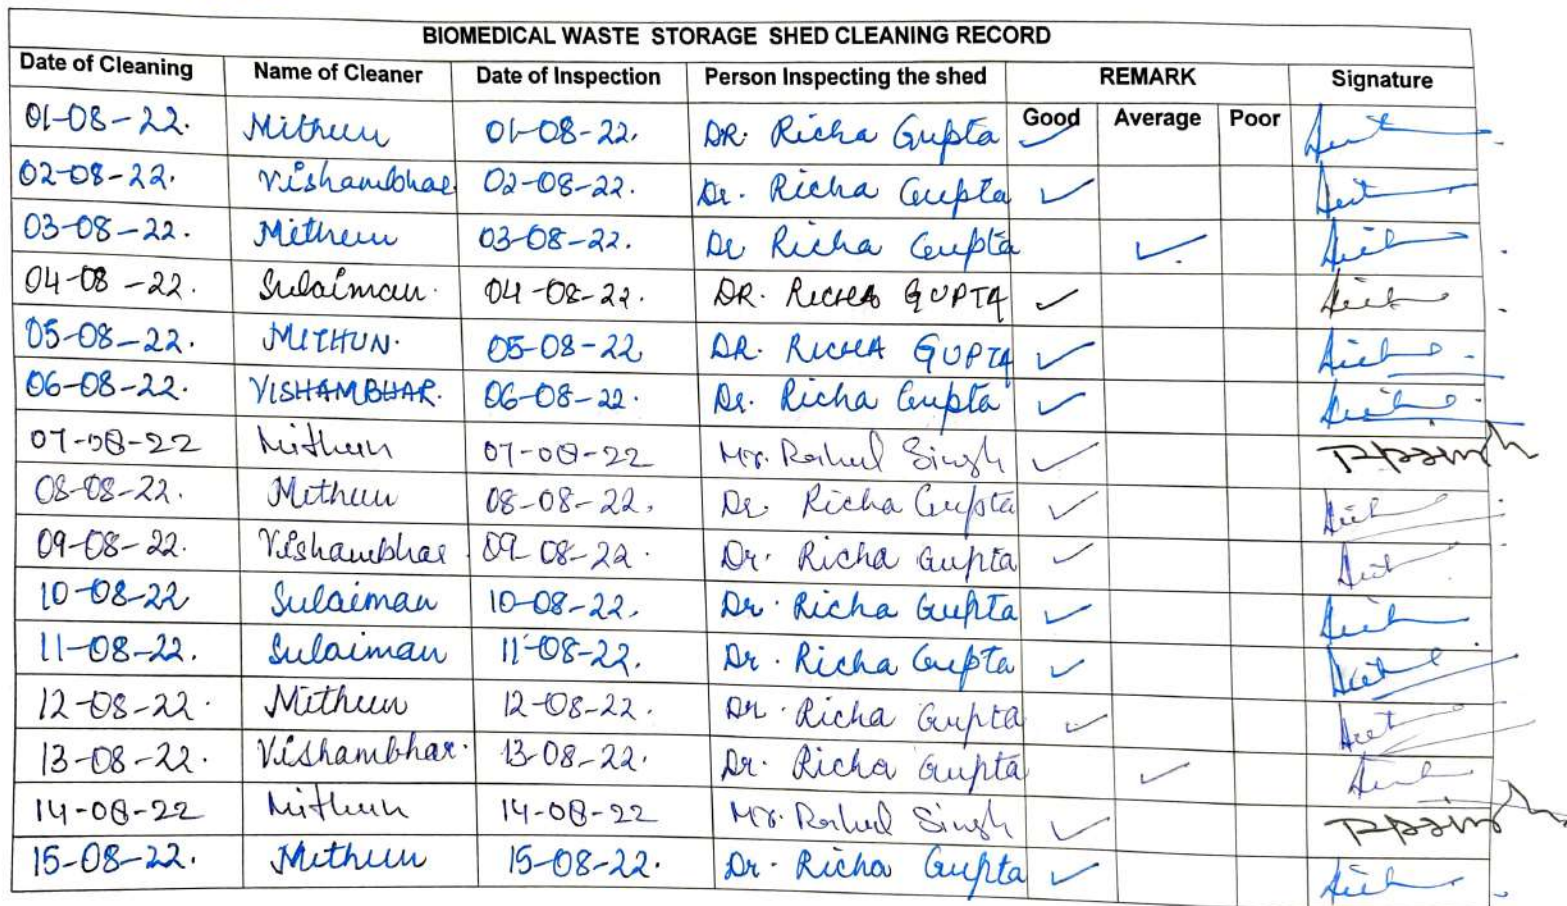 BIOMEDICAL WASTE STORAGE SHED CLEANING RECORD
Date of Cleaning Name of Cleaner Date of Inspection Person Inspecting the shed REMARK Signature
Good Average Poor
01-08-22. Mithun 01-08-22. DR. Richa Gupta ✓
02-08-22. Vishambhar 02-08-22. Dr. Richa Gupta ✓
03-08-22. Mithun 03-08-22. Dr Richa Gupta ✓
04-08-22. Sulaiman. 04-08-22. DR. RICHA GUPTA ✓
05-08-22. MITHUN. 05-08-22 DR. RICHA GUPTA ✓
06-08-22. VISHAMBHAR. 06-08-22. Dr. Richa Gupta ✓
07-08-22 Mithun 07-08-22 Mr. Rahul Singh ✓
08-08-22. Mithun 08-08-22. Dr. Richa Gupta ✓
09-08-22. Vishambhar 09-08-22. Dr. Richa Gupta ✓
10-08-22 Sulaiman 10-08-22. Dr. Richa Gupta ✓
11-08-22. Sulaiman 11-08-22. Dr. Richa Gupta ✓
12-08-22. Mithun 12-08-22. Dr. Richa Gupta ✓
13-08-22. Vishambhar. 13-08-22. Dr. Richa Gupta ✓
14-08-22 Mithun 14-08-22 Mr. Rahul Singh ✓
15-08-22. Mithun 15-08-22. Dr. Richa Gupta ✓